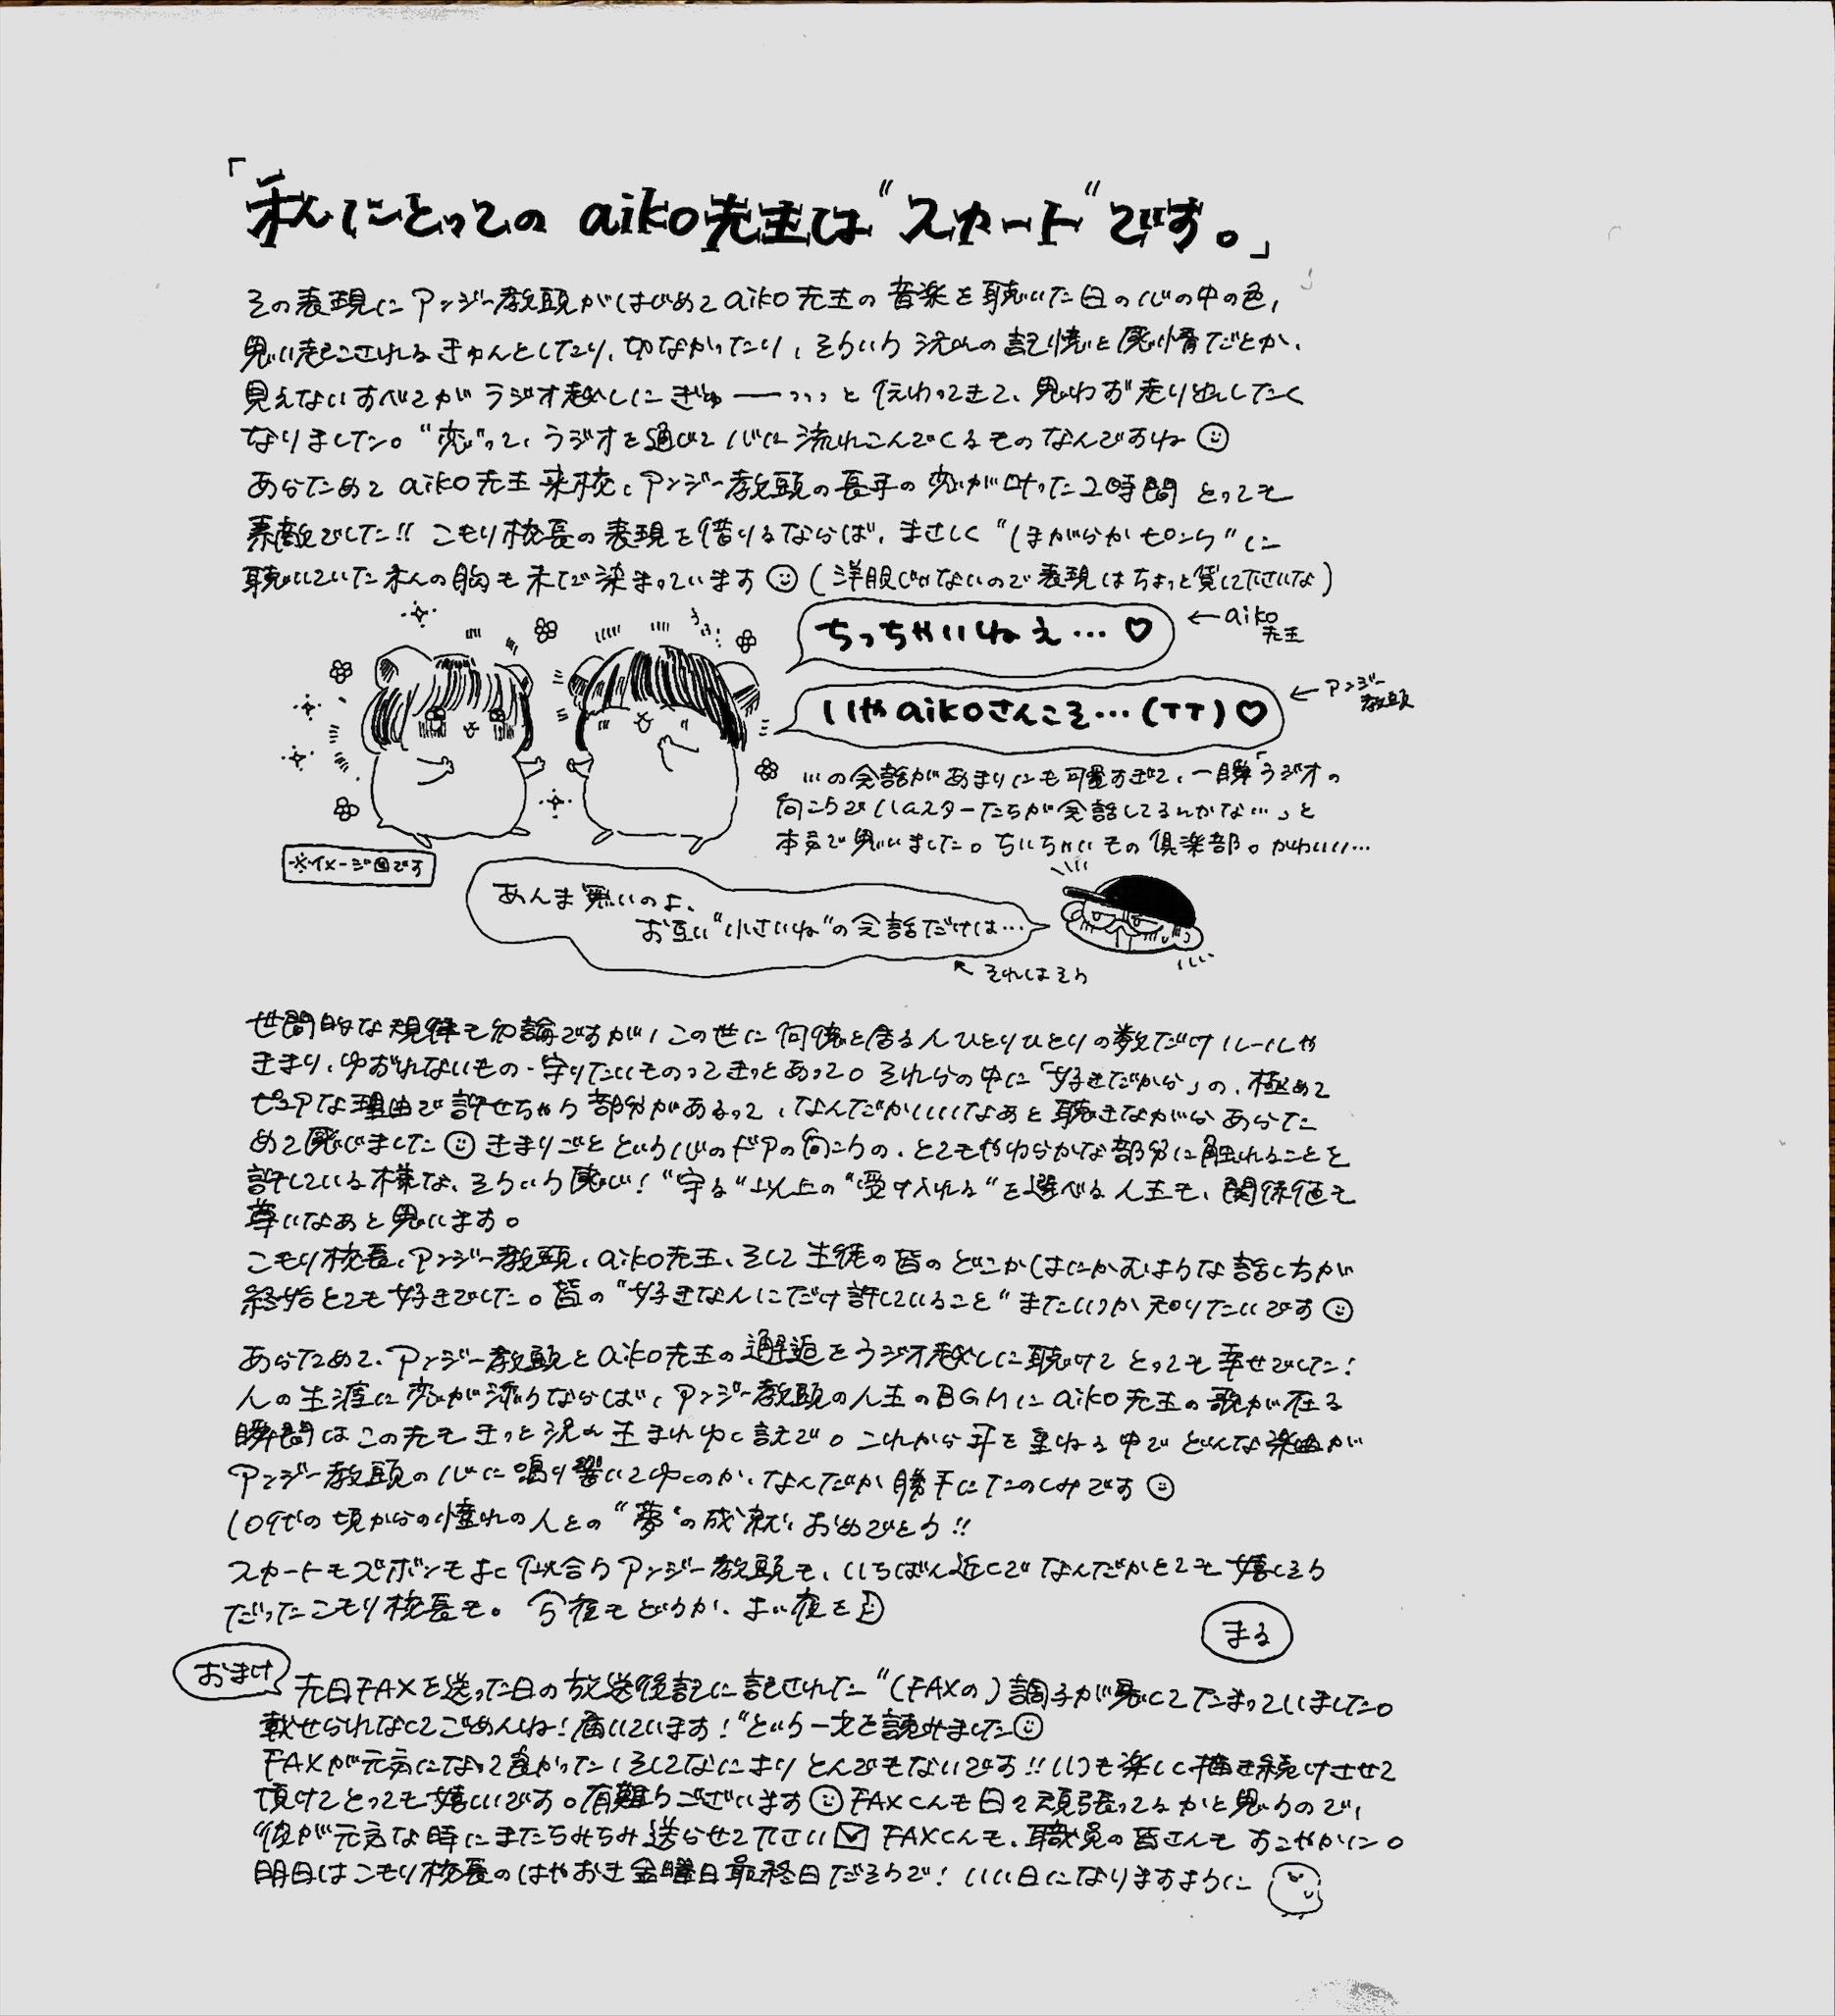 「私にとってのaiko先生は“スカート”です。」
その表現にアンジー教頭がはじめてaiko先生の音楽を聴いた日の心の中の色、
思い起こされるきゅんとしたり、切なかったり、そういう沢山の記憶と感情だとか、
見えないすべてがラジオ越しにぎゅーーっっっと伝わってきて、思わず走り出したく
なりました。“恋”って、ラジオを通じて心に流れこんでくるものなんですね☺
あらためてaiko先生来校、アンジー教頭の長年の恋が叶った2時間とっても
素敵でした!! こもり校長の表現を借りるならば、まさしく“ほがらかピンク”に
聴いていた私の胸もまだ染まっています☺(洋服じゃないので表現はちょっと賃して下さいな)
ちっちゃいねぇ…♡
←aiko先生
いやaikoさんこそ…(TT)♡
←アンジー教頭
…の会話があまりにも可愛すぎて、一瞬「ラジオの
向こうでハムスターたちが会話してるんかな…」と
本気で思いました。ちいちゃいもの倶楽部。かわいい…
※イメージ図です
あんま無いのよ、
お互い“小さいね”の会話だけは…
↖それはそう
世間的な規律も勿論ですが、この世に何億と居る人ひとりひとりの数だけルールや
きまり、ゆずれないもの・守りたいものってきっとあって。それらの中に「好きだから」の、極めて
ピュアな理由で許せちゃう部分があるって、なんだかいいなあと聴きながらあらた
めて感じました☺きまりごとという心のドアの向こうの、とてもやわらかな部分に触れることを
許している様な、そういう感じ!“守る”以上の“受け入れる”を選べる人生も、関係値も
尊いなあと思います。
こもり校長、アンジー教頭、aiko先生、そして生徒の皆のどこかはにかむような話し方が
終始とても好きでした。皆の“好きな人にだけ許していること”またいつか知りたいです☺
あらためて、アンジー教頭とaiko先生の邂逅をラジオ越しに聴けてとっても幸せでした!
人の生涯に恋が添うならば、アンジー教頭の人生のBGMにaiko先生の歌が在る
瞬間はこの先もきっと沢山生まれゆく訳で。これから年を重ねる中でどんな楽曲が
アンジー教頭の心に鳴り響いてゆくのか、なんだか勝手にたのしみです☺
10代の頃からの憧れの人との“夢”の成就、おめでとう!!
スカートもズボンもよく似合うアンジー教頭も、いちばん近くでなんだかとても嬉しそう
だったこもり校長も。今夜もどうか、よい夜を☺
まる
おまけ
先日FAXを送った日の放送後記に記された“(FAXの)調子が悪くてたまっていました。
載せられなくてごめんね!届いています!”という一文を読みました☺
FAXが元気になって良かった、そしてなによりとんでもないです!! いつも楽しく描き続けさせて
頂けてとっても嬉しいです。有難うございます☺FAXくんも日々頑張ってるかと思うので、
彼が元気な時にまたちみちみ送らせて下さい☑ FAXくんも、職員の皆さんもすこやかに。
明日はこもり校長のはやおき金曜日最終日だそうで! いい日になりますように